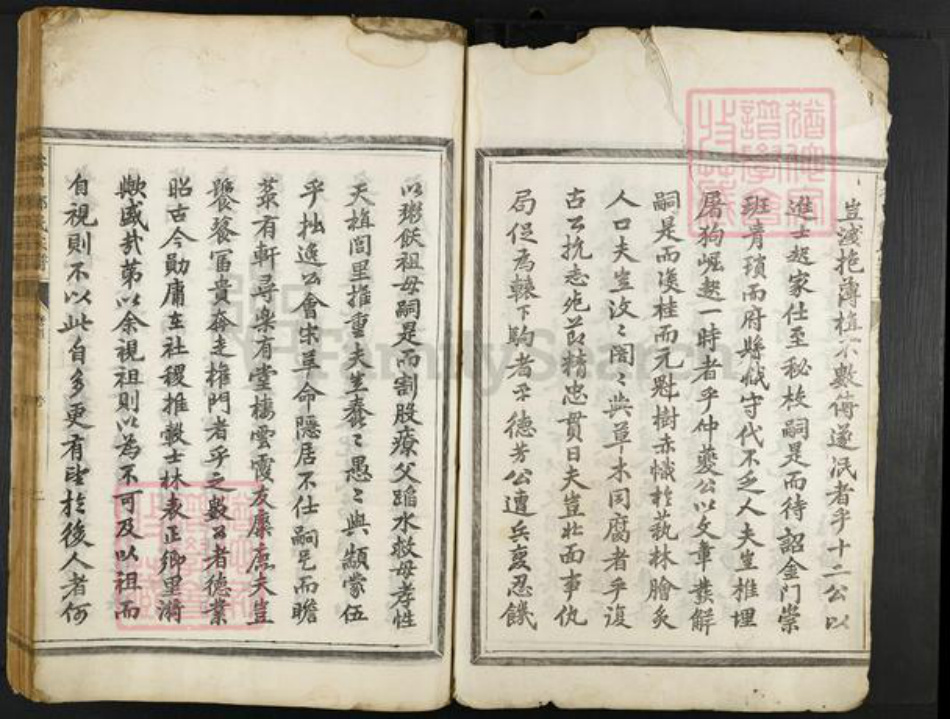 豈淺抱薄植不數傳遂泯者乎十二公以
進士起家仕至秘校嗣是而待詔金門崇
班青瑣而府縣牧守代不乏人夫豈椎埋
屠狗崛起一時者乎仲夔公以文章發解
嗣是而浚桂而元慰樹赤幟於藝林膾炙
人口夫豈汶汶闇闇與草木同腐者乎復
古公抗志死節精忠貫日夫豈北面事仇
局促為轅下駒者乎德芳公遭兵變忍饑
以粥飫祖母嗣是而割股療父蹈水救母孝性
天植閭里推重夫豈蠢蠢愚愚與顓蒙伍
乎拙逸公會宋革命隱居不仕嗣是而瞻
菉有軒尋樂有堂棲雲霞友麋鹿夫豈
饕餮富貴奔走權門者乎之數公者德業
昭古今勛庸在社稷推轂士林表正鄉里漪
歟盛哉第以余視祖則以為不可及以祖而
自視則不以此自多更有望於後人者何
FamilySearch